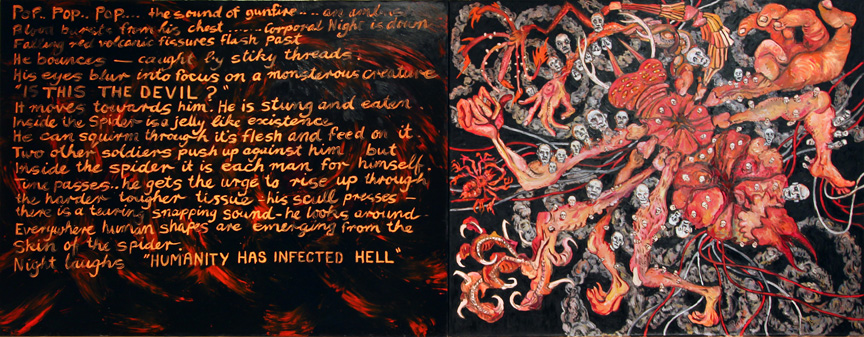 Pop.. Pop.. Pop.... the sound of gunfire.... an ambush
Blood bursts from his chest ...... Corporal Night is down
Falling red volcanic fissures flash past
He bounces — caught by stiky threads.
His eyes blur into focus on a monsterous creature
"IS THIS THE DEVIL?"
It moves towards him. He is stung and eaten
Inside the Spider is a jelly like existence
He can squirm through it's flesh and feed on it.
Two other soldiers push up against him, but
Inside the spider it is each man for himself.
Time passes.. he gets the urge to rise up through
the harder tougher tissue, his scull presses —
there is a tearing snapping sound - he looks around.
Everywhere human shapes are emerging from the
Skin of the spider.
Night laughs "HUMANITY HAS INFECTED HELL"